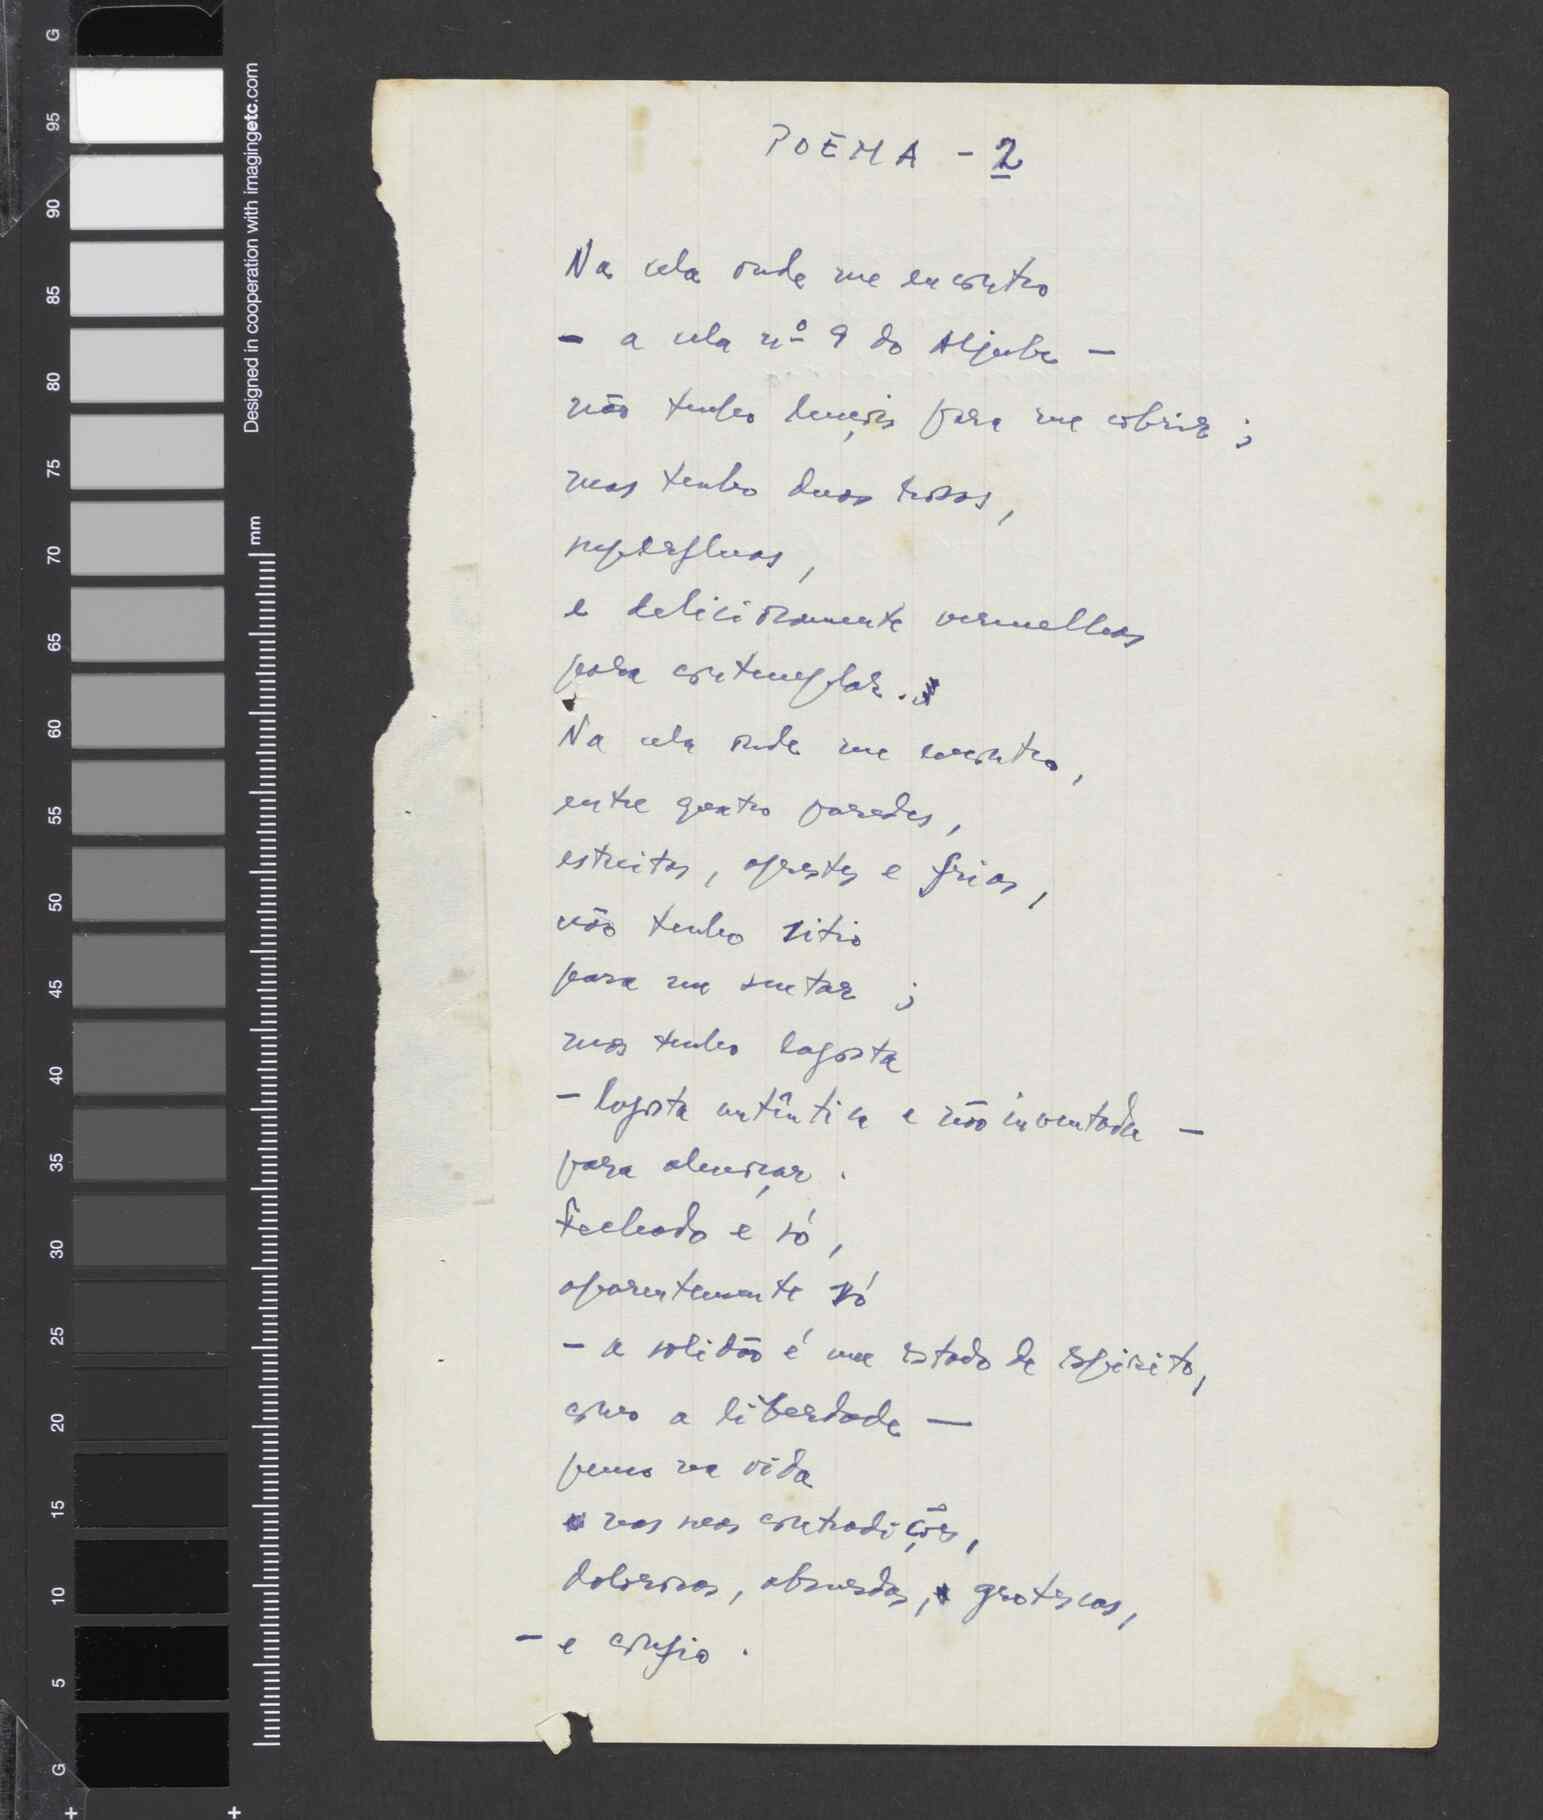 POEMA - 2
Na cela onde me encontro
- a cela nº 9 do Aljube -
não tenho lençois para me cobrir ;
mas tenho duas rosas ,
superfluas ,
e deliciosamente vermelhas
para contemplar .
Na cela onde me encontro ,
entre quatro paredes ,
estreitas , agrestes e frias ,
não tenho sitio
para me sentar ;
mas tenho lagosta
- lagosta autêntica e não inventada -
para almoçar .
Fechado e só ,
aparentemente só
- a solidão é um estado de espirito ,
como a liberdade -
penso na vida
nas suas contradições ,
dolorosas , absurdas , grotescas ,
- e confio .
G
95
90
85
80
75
70
65
60
55
50
45
40
35
30
25
20
15
10
5
G
Designed in cooperation with imagingetc.com
mm